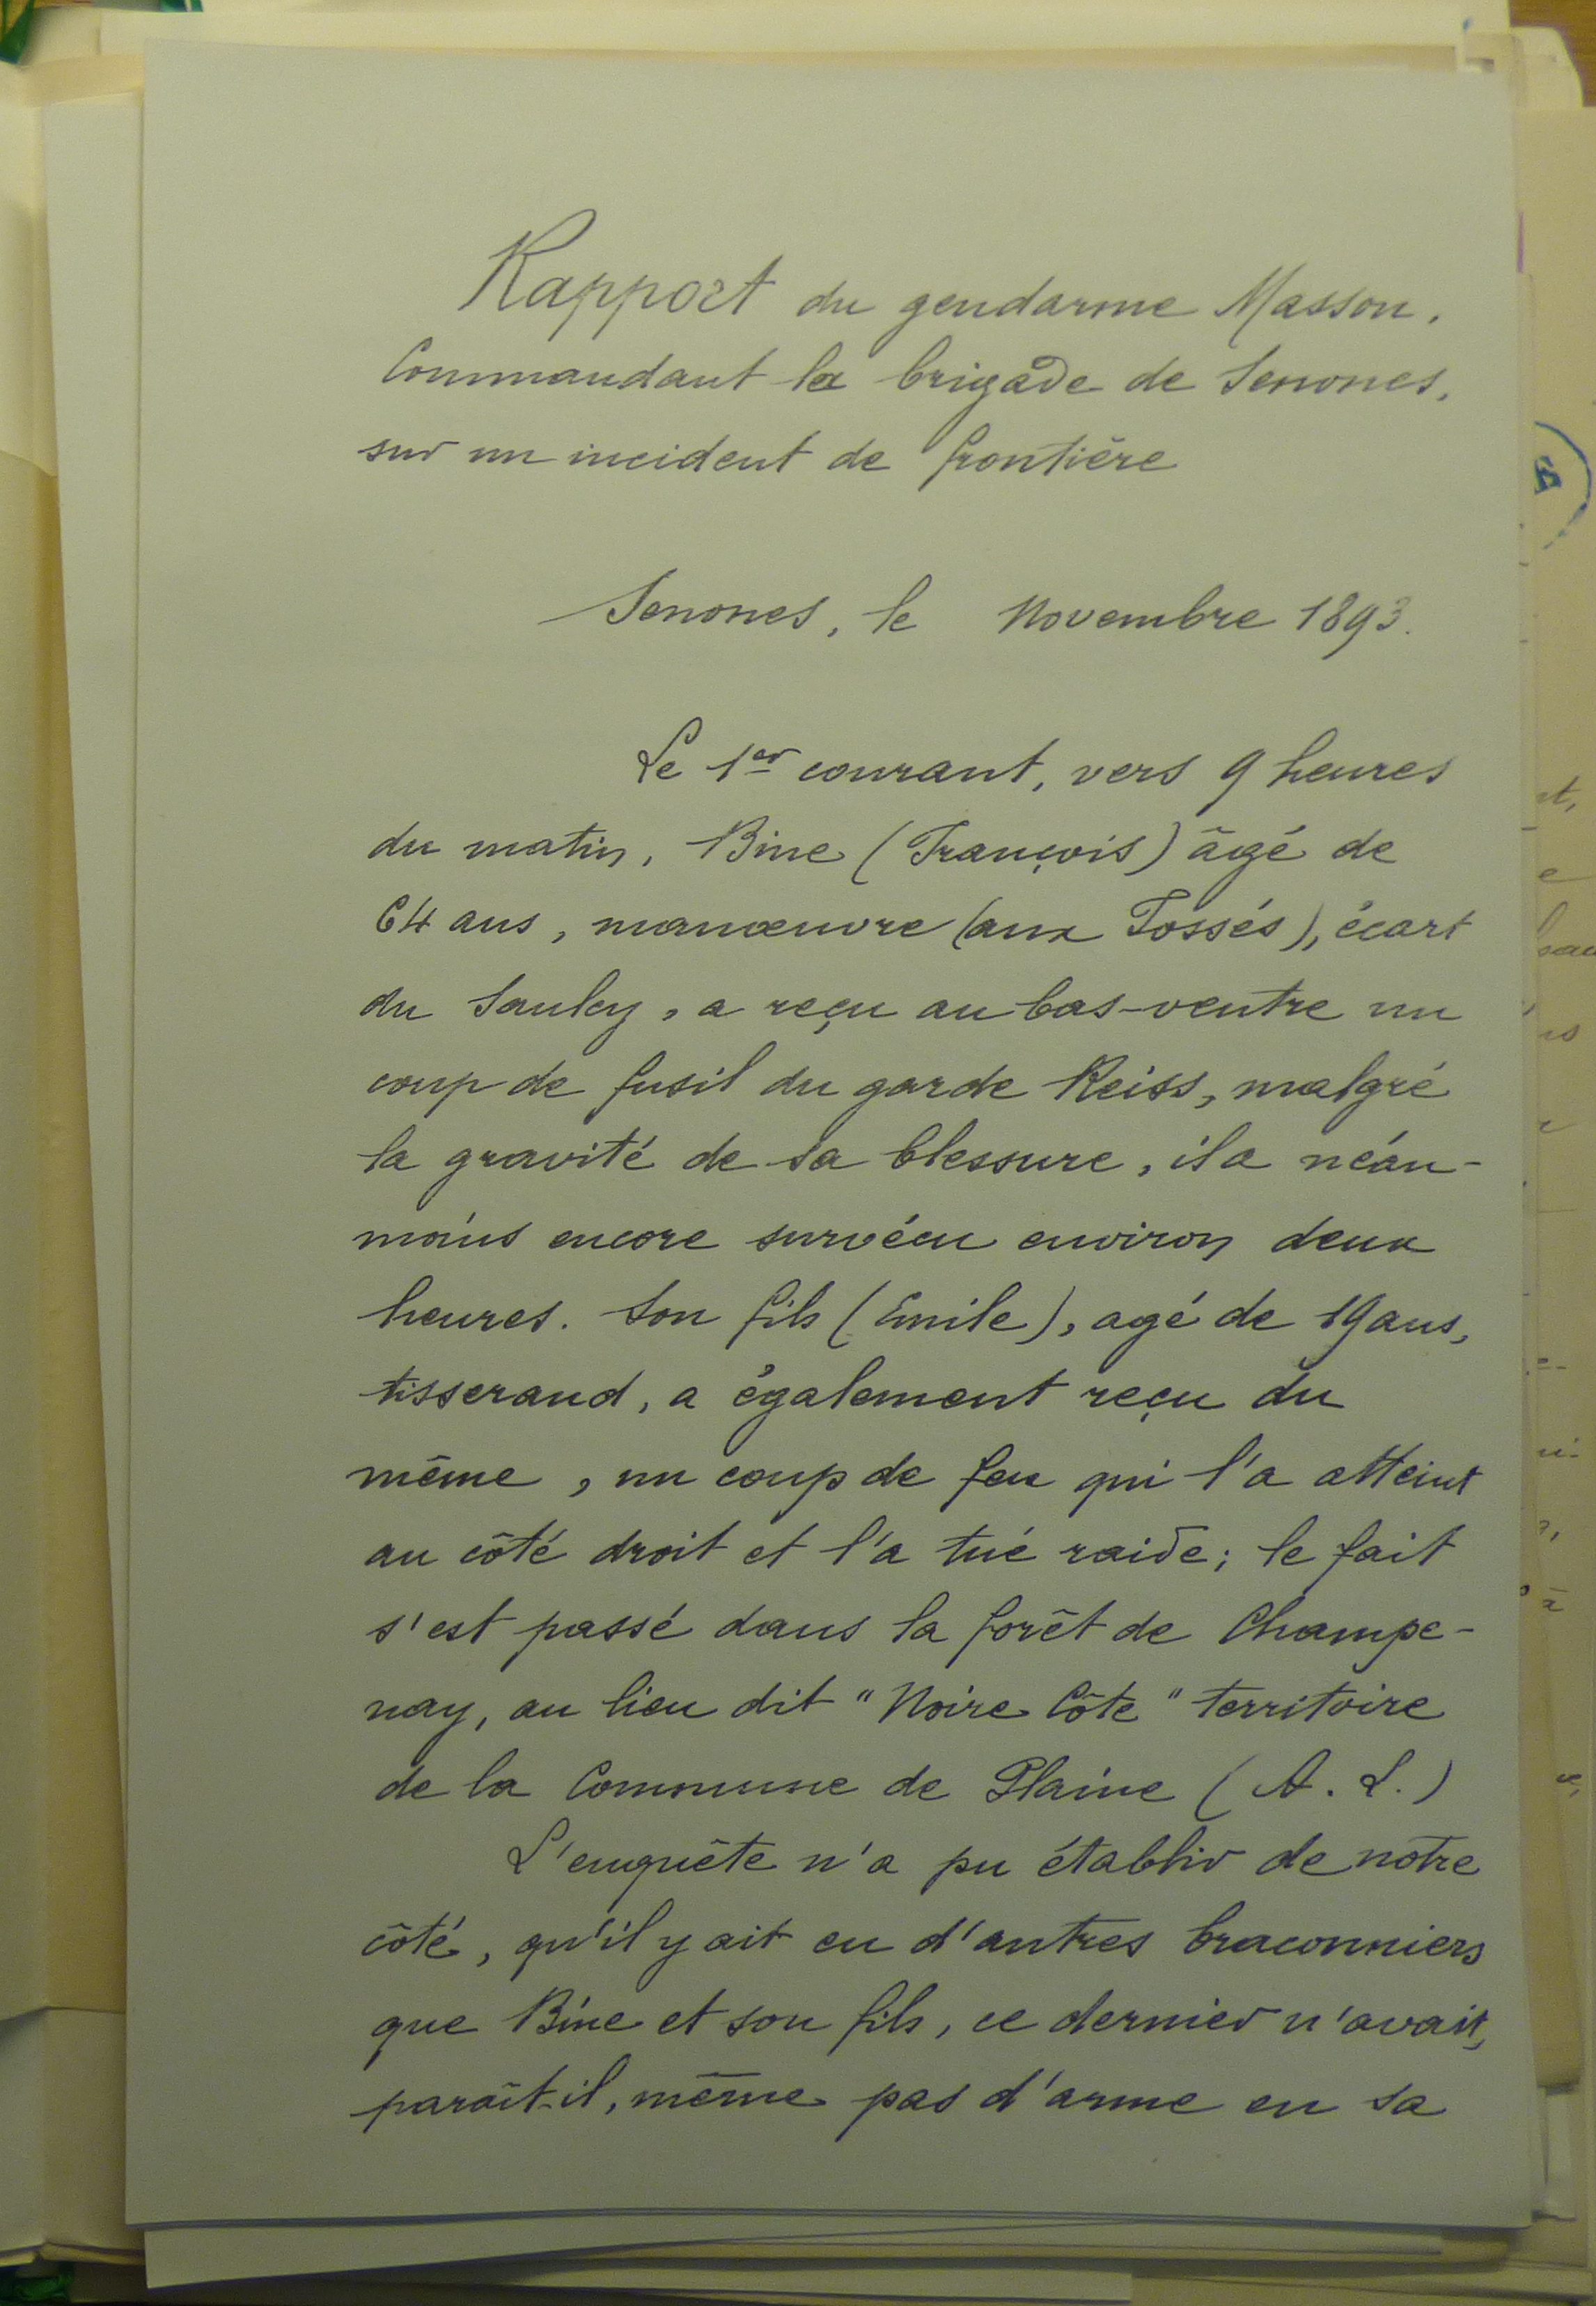 Rapport du gendarme Masson.
Commandant la brigade de Senones,
sur un incident de frontière
Senones, le Novembre 1893.
Le 1er courant, vers 9 heures
du matin, Bine (François) âgé de
64 ans, manœuvre (aux Fossés), écart
du Saulcy, a reçu au bas-ventre un
coup de fusil du garde Reiss, malgré
la gravité de sa blessure, il a néan-
moins encore survécu environ deux
heures. Son fils (Emile), agé de 19 ans,
tisserand, a également reçu du
même, un coup de feu qui l'a atteint
au côté droit et l'a tué raide; le fait
s'est passé dans la forêt de Champe-
nay, au lieu dit "Noire Côte" territoire
de la Commune de Plaine (A. L.)
L'enquête n'a pu établir de notre
côté, qu'il y ait eu d'autres braconniers
que Bine et son fils, ce dernier n'avait,
paraît-il, même pas d'arme en sa